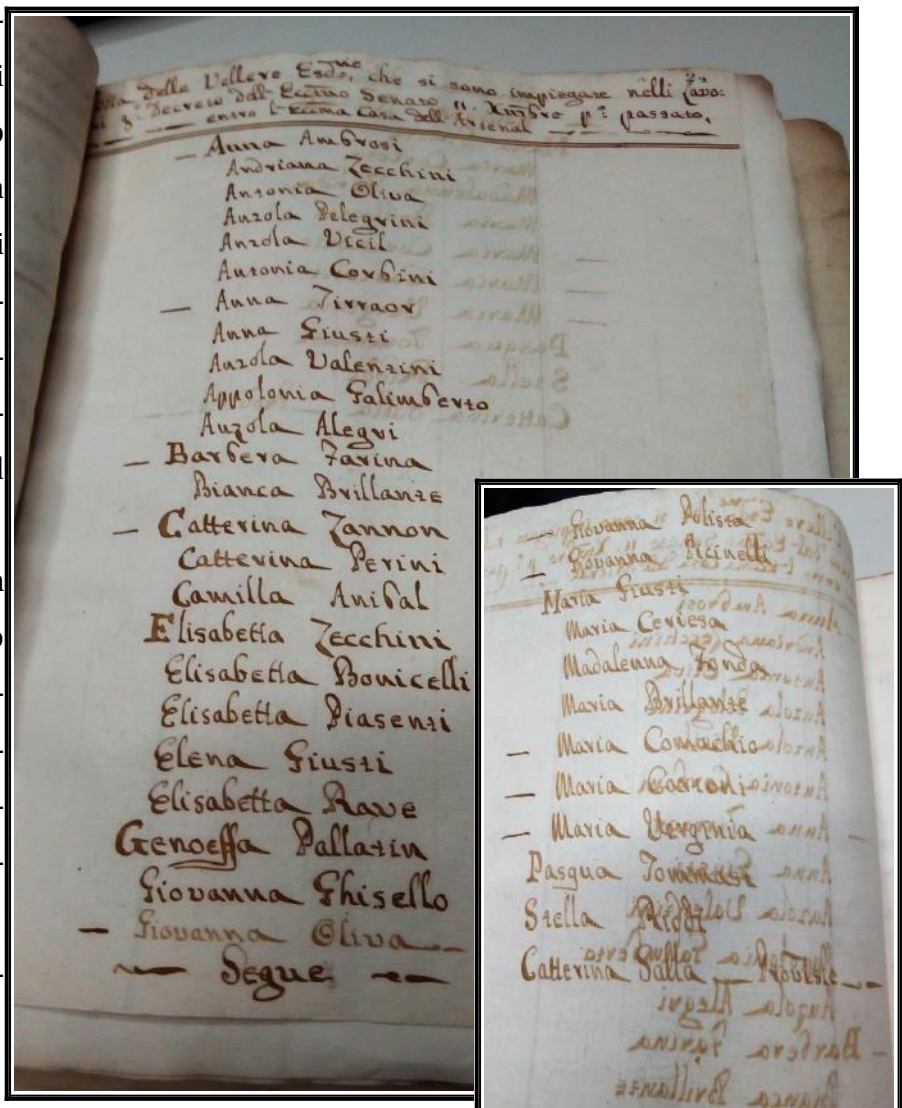 delle Vellere Esdᵗ, che si sono impiegate nelli Lavo:
Decreto dell' Eccmo Senato 11 Xmbre pº: passato,
entro l' Eccma Casa dell' Arsenal
— Anna Ambrosi
Andriana Zecchini
Antonia Oliva
Anzola Pelegrini
Anzola Vicil
Antonia Corbini
— Anna Tirraor
Anna Giusti
Anzola Valentini
Appolonia Galimberto
Anzola Alegri
— Barbera Farina
Bianca Brillante
— Catterina Zannon
Catterina Perini
Camilla Anibal
Elisabetta Zecchini
Elisabetta Bonicelli
Elisabetta Piasenti
Elena Giusti
Elisabetta Rave
Genoeffa Pallatin
Giovanna Ghisello
— Giovanna Oliva —
— Segue —
— Giovanna Polissa
— Giovanna Picinelli
Maria Giusti
Maria Ceriesa
Madalenna Fonda
Maria Brillante
— Maria Comachio
— Maria
— Maria Verginia
Pasqua Tommasi
Stella
Catterina Salla —